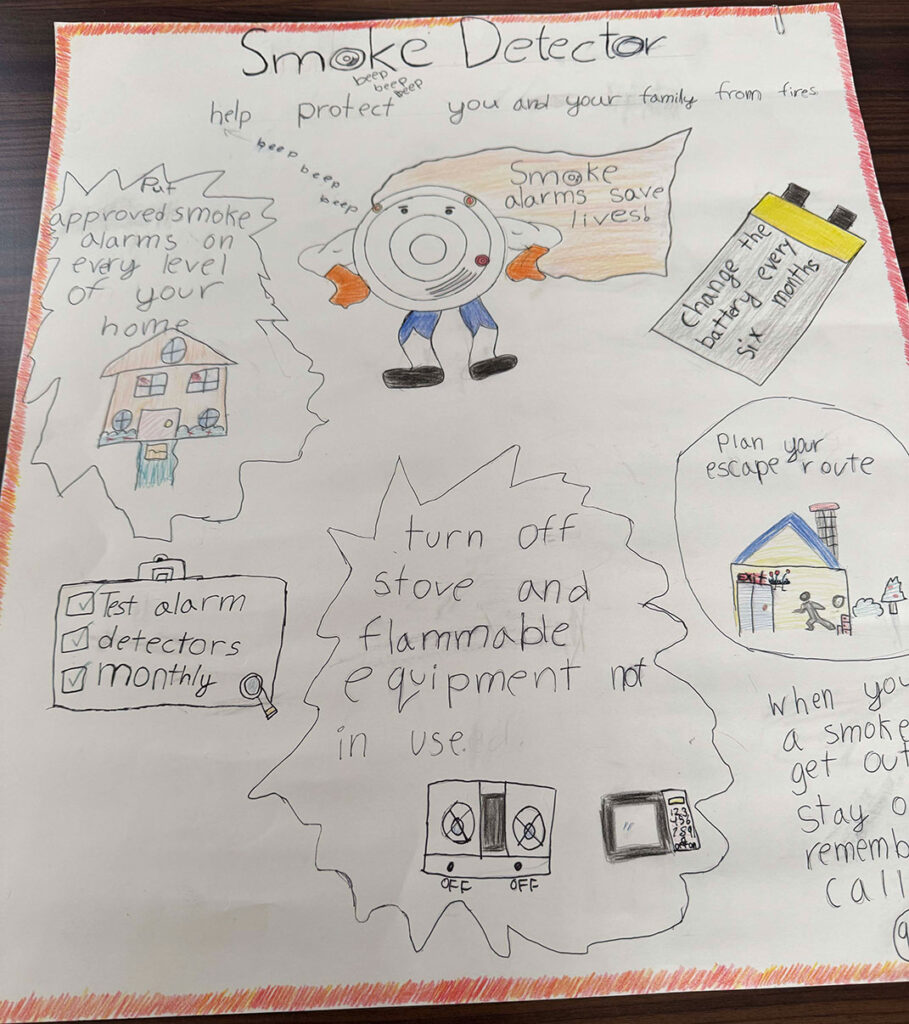 Smoke Detector
beep
beep
beep
help protect you and your family from fires
beep
beep
beep
Smoke
alarms save
lives!
Put
approved smoke
alarms on
every level
of your
home
Change the
battery every
six months
Plan your
escape route
exit
turn off
stove and
flammable
equipment not
in use.
OFF OFF
Test alarm
detectors
monthly
when you
a smoke
get out
stay
call